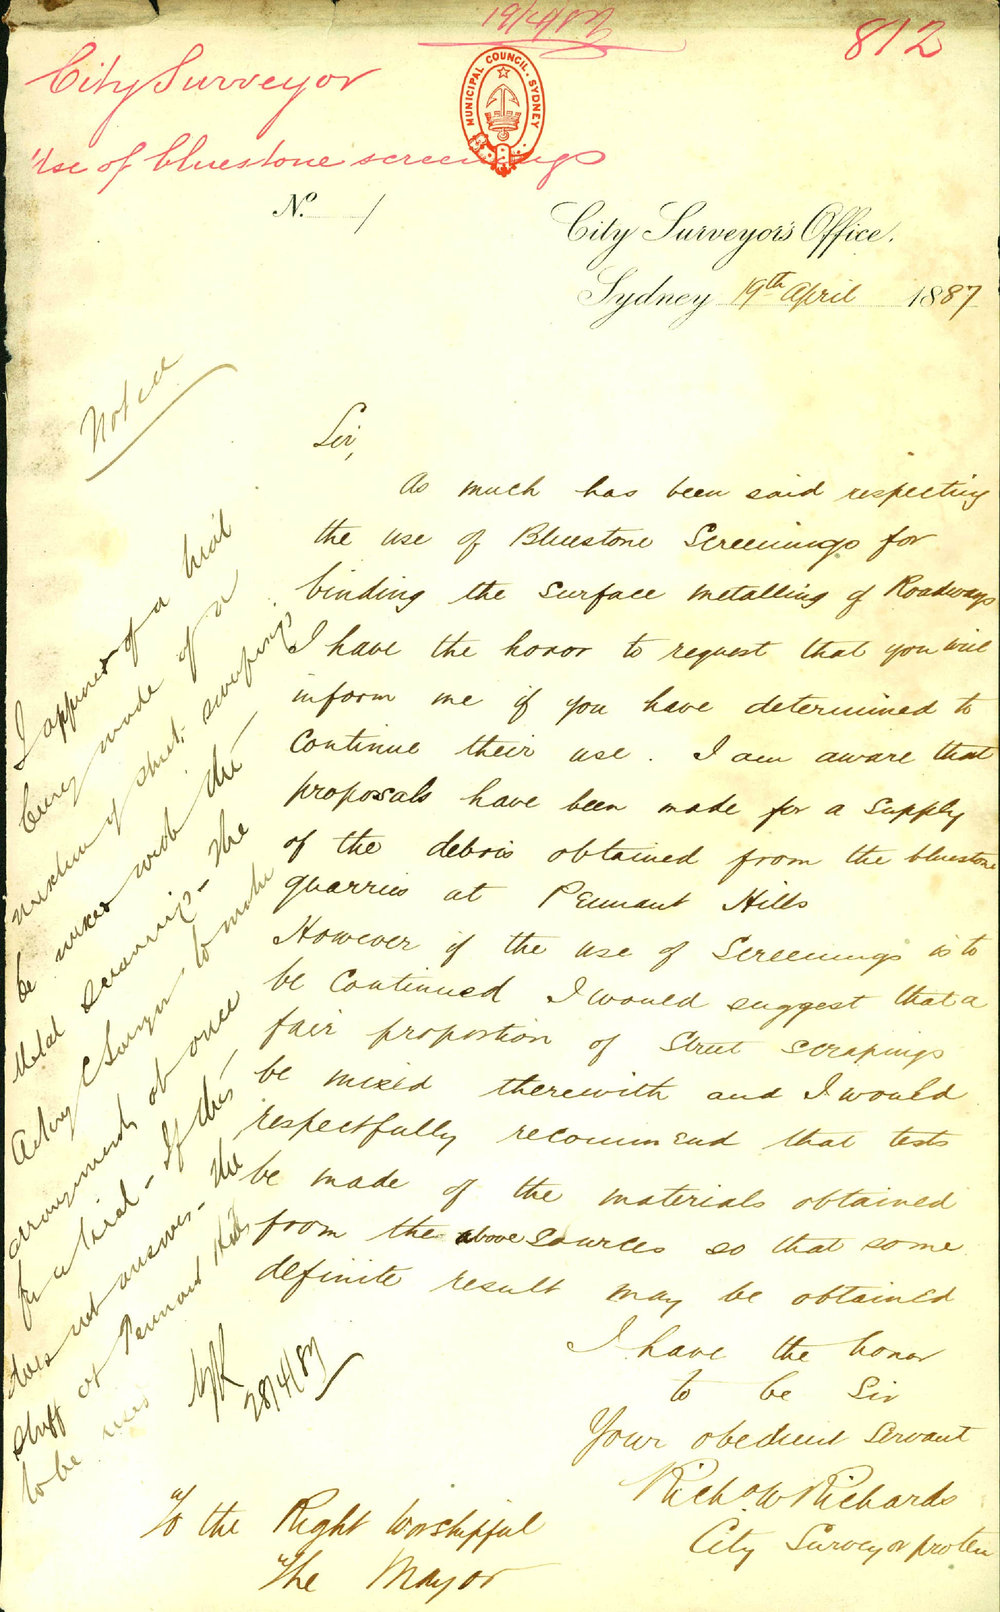 19/4/87
812
City Surveyor
Use of bluestone screenings
MUNICIPAL COUNCIL. SYDNEY
No. 1
City Surveyor's Office.
Sydney 19th April 1887
Noted
Sir,
As much has been said respecting
the use of Bluestone Screenings for
binding the surface metalling of Roadways
I have the honor to request that you will
inform me if you have determined to
continue their use. I am aware that
proposals have been made for a supply
of the debris obtained from the bluestone
quarries at Pennant Hills
However if the use of Screenings is to
be continued I would suggest that a
fair proportion of Street scrapings
be mixed therewith and I would
respectfully recommend that tests
be made of the materials obtained
from the above sources so that some
definite result may be obtained
I have the honor
to be Sir
Your obedient Servant
Richd W Richards
City Surveyor pro tem
To the Right Worshipful
The Mayor
I approve of a trial
being made of a
mixture of street sweepings
be mixed with the
Metal screenings - The
Acting C Surveyor to make
arrangements at once
for a trial - If this
does not answer - the
stuff at Pennant Hills
to be used
28/4/87